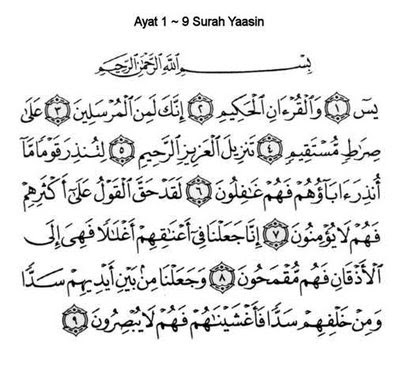 Ayat 1 ~ 9 Surah Yaasin
بِسْمِ ٱللَّهِ ٱلرَّحْمَٰنِ ٱلرَّحِيمِ
يسٓ ۝١ وَٱلْقُرْءَانِ ٱلْحَكِيمِ ۝٢ إِنَّكَ لَمِنَ ٱلْمُرْسَلِينَ ۝٣ عَلَىٰ
صِرَٰطٍ مُّسْتَقِيمٍ ۝٤ تَنزِيلَ ٱلْعَزِيزِ ٱلرَّحِيمِ ۝٥ لِتُنذِرَ قَوْمًا مَّآ
أُنذِرَ ءَابَآؤُهُمْ فَهُمْ غَٰفِلُونَ ۝٦ لَقَدْ حَقَّ ٱلْقَوْلُ عَلَىٰٓ أَكْثَرِهِمْ
فَهُمْ لَا يُؤْمِنُونَ ۝٧ إِنَّا جَعَلْنَا فِىٓ أَعْنَٰقِهِمْ أَغْلَٰلًا فَهِىَ إِلَى
ٱلْأَذْقَانِ فَهُم مُّقْمَحُونَ ۝٨ وَجَعَلْنَا مِنۢ بَيْنِ أَيْدِيهِمْ سَدًّا
وَمِنْ خَلْفِهِمْ سَدًّا فَأَغْشَيْنَٰهُمْ فَهُمْ لَا يُبْصِرُونَ ۝٩